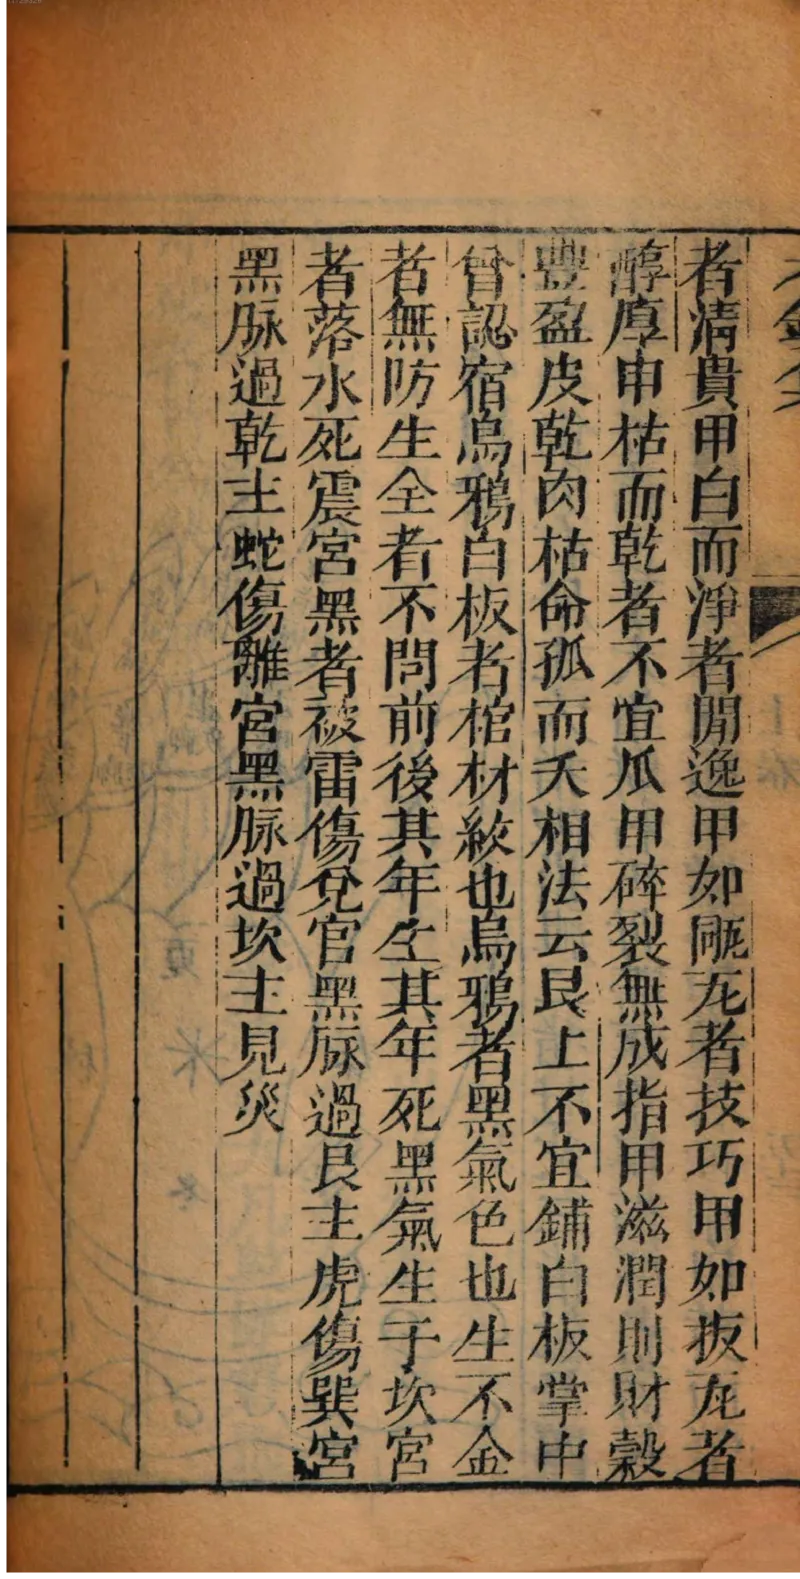 者清貴甲白而淨者閒逸甲如瓦者技巧甲如板瓦者
醇厚甲枯而乾者不宜瓜甲碎裂無成指甲滋潤則財穀
豐盈皮乾肉枯命孤而夭相法云艮上不宜鋪白板掌中
曾認宿烏鴉白板者棺材紋也烏鴉者黑氣色也生不金
者無防生全者不問前後其年生其年死黑氣生于坎宮
者落水死震宮黑者被雷傷兌官黑脉過艮主虎傷巽宮
黑脉過乾主蛇傷離宮黑脉過坎主見災